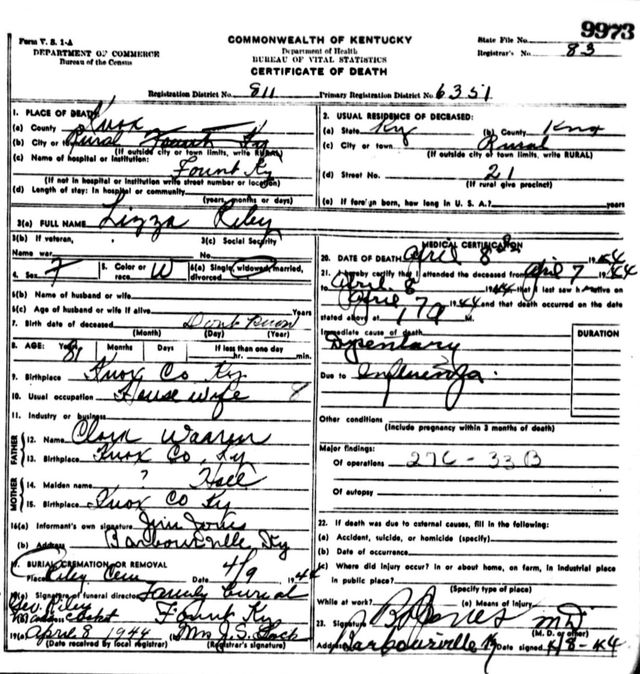 9973
Form V. S. 1-A
DEPARTMENT OF COMMERCE
Bureau of the Census
COMMONWEALTH OF KENTUCKY
Department of Health
BUREAU OF VITAL STATISTICS
CERTIFICATE OF DEATH
State File No.
Registrar's No. 83
Registration District No. 811 Primary Registration District No. 6351
1. PLACE OF DEATH
(a) County Knox
(b) City or Rural Fount Ky
(If outside city or town limits, write RURAL)
(c) Name of hospital or institution:
Fount Ky
(If not in hospital or institution write street number or location)
(d) Length of stay: In hospital or community
(years, months or days)
2. USUAL RESIDENCE OF DECEASED:
(a) State Ky (b) County Knox
(c) City or town Rural
(If outside city or town limits, write RURAL)
(d) Street No. 21
(If rural give precinct)
(e) If foreign born, how long in U. S. A.? years
3(a) FULL NAME Lizza Riley
3(b) If veteran, 3(c) Social Security
Name war No.
4. Sex F 5. Color or race W 6(a) Single, widowed, married, divorced
6(b) Name of husband or wife
6(c) Age of husband or wife if alive Years
7. Birth date of deceased Dont Know
(Month) (Day) (Year)
8. AGE: Years 81 Months Days If less than one day
hr. min.
9. Birthplace Knox Co Ky
10. Usual occupation House wife
11. Industry or business
FATHER
12. Name Warren
13. Birthplace Knox Co, Ky
MOTHER
14. Maiden name ? Hall
15. Birthplace Knox Co Ky
16(a) Informant's own signature Jim Jones
(b) Address Barbourville, Ky
17. BURIAL, CREMATION OR REMOVAL
Place Riley Cem Date 4/9 1944
18(a) Signature of funeral director Family burial
Geo. Riley
(b) Address Fount Ky
19(a) April 8 1944 Mrs J. S.
(Date received by local registrar) (Registrar's signature)
MEDICAL CERTIFICATION
20. DATE OF DEATH April 8 1944
21. I hereby certify that I attended the deceased from April 7 1944
to April 8 1944 that I last saw h alive on
April 7 1944 and that death occurred on the date
stated above at M.
Immediate cause of death
Dysentary
DURATION
Due to Influenza
Other conditions
(Include pregnancy within 3 months of death)
Major findings:
Of operations 27C-33B
Of autopsy
22. If death was due to external causes, fill in the following:
(a) Accident, suicide, or homicide (specify)
(b) Date of occurrence
(c) Where did injury occur? In or about home, on farm, in industrial place
in public place?
(Specify type of place)
While at work? (e) Means of injury
23. Signature Jones MD
(M. D. or other)
Address Barbourville Ky Date signed 4-8-44